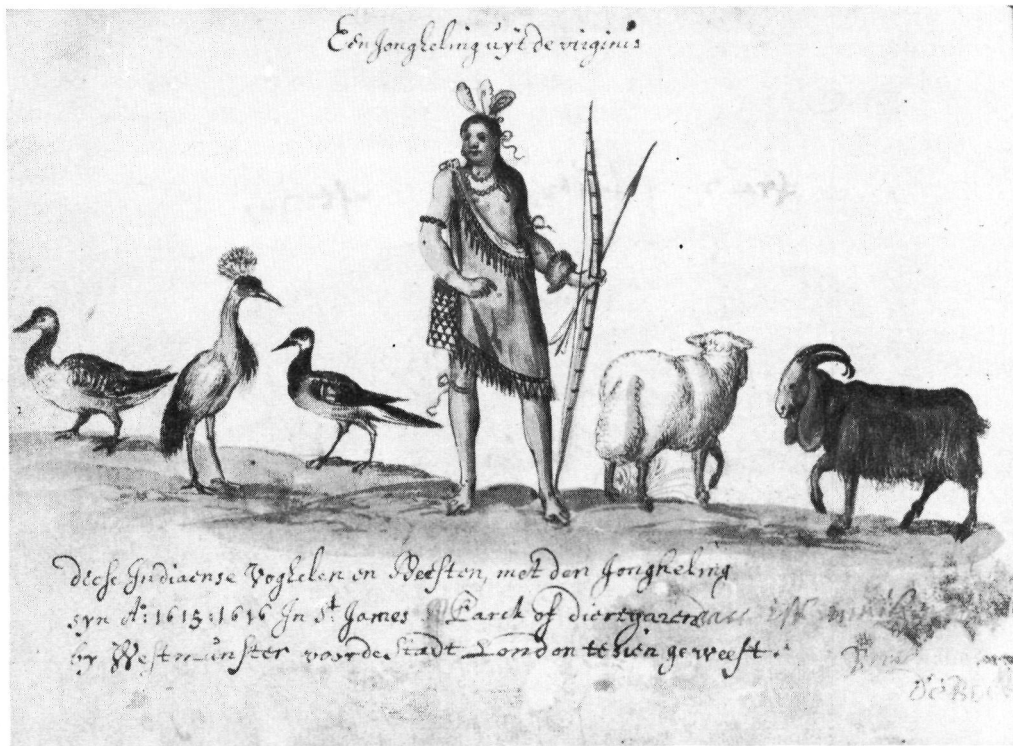 Een Jongheling uyt de virginis
diese Indiaense Voghelen en Beesten, met den Jongheling
syn A: 1615: 1616 In St James Parck of diergaren
by Westmunster voor de Stadt London te sien geweest.